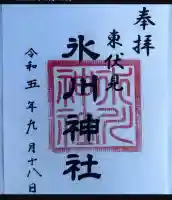 奉拝
東伏見
氷川神社
令和五年九月十八日